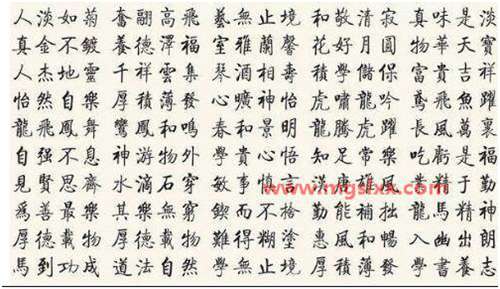 人淡如菊 奮翮高飛 藝無止境 和敬清寂 真味是淡
真金不鍍 養德澤福 室雅蘭馨 花好月圓 物華天寶
人杰地靈 千祥雲集 琴酒相壽 積學儲 富貴吉祥
怡然自樂 厚積薄發 曠神怡 虎嘯龍吟 鳶飛魚躍
龍飛鳳舞 鸞鳳和鳴 春和景明 龍騰虎躍 長風萬裏
自强不息 神游物外 學貴心悟 知足常樂 吃虧是福
見賢思齊 水滴石穿 敏事慎言 漢唐雄風 業精于勤
爲善最樂 其樂無窮 鍥而不捨 勤能補拙 龍馬精神
厚德載物 厚德載物 難得糊塗 惠風和暢 入幽出朗
馬到功成 道法自然 學無止境 厚積薄發 學書養志
www.mgslxx.com